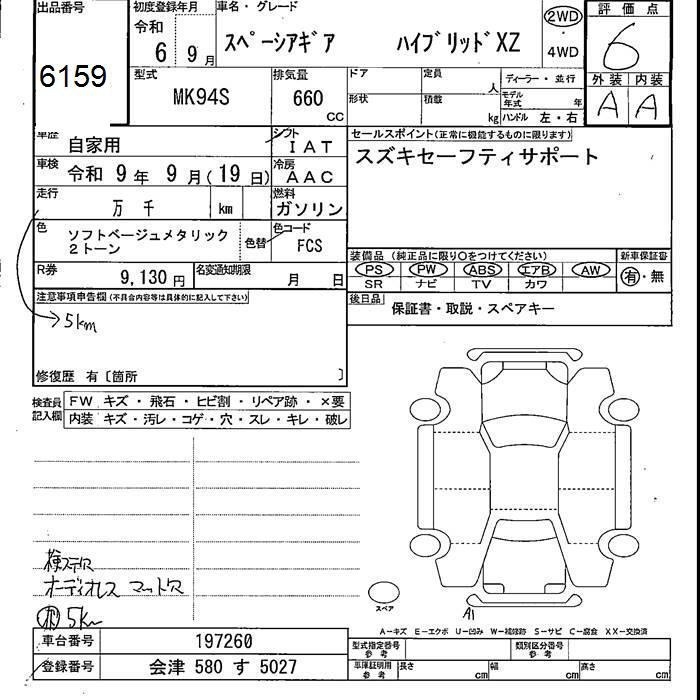 出品番号
6159
初度登録年月
令和
6 9月
車名・グレード
スペーシアギア ハイブリッドXZ
2WD
・
4WD
評価点
6
外装 内装
A A
型式
MK94S
排気量
660
CC
ドア
定員
人
形状
積載
kg
ディーラー・並行
モデル年式 年
ハンドル 左・右
車歴
自家用
シフト
IAT
車検
令和 9年 9月(19日)
冷房
AAC
走行
万 千 km
燃料
ガソリン
色
ソフトベージュメタリック
2トーン
色替
色コード
FCS
R券
9,130円
名変通知期限
月 日
セールスポイント(正常に機能するものに限ります)
スズキセーフティサポート
装備品(純正品に限り○をつけてください)
PS PW ABS エアB AW
SR ナビ TV カワ
新車保証書
有・無
後日品
保証書・取説・スペアキー
注意事項申告欄(不具合内容等は具体的に記入して下さい)
5km
修復歴 有〔箇所 〕
検査員記入欄
FW キズ・飛石・ヒビ割・リペア跡・×要
内装 キズ・汚レ・コゲ・穴・スレ・キレ・破レ
検ステ穴
オーディオレス マット欠
5km
スペア
A1
A-キズ E-エクボ U-凹み W-補修跡 S-サビ C-腐食 XX-交換済
車台番号
197260
登録番号
会津 580 す 5027
型式指定番号
参考
類別区分番号
参考
車庫証明用
参考
長さ cm
幅 cm
高さ cm